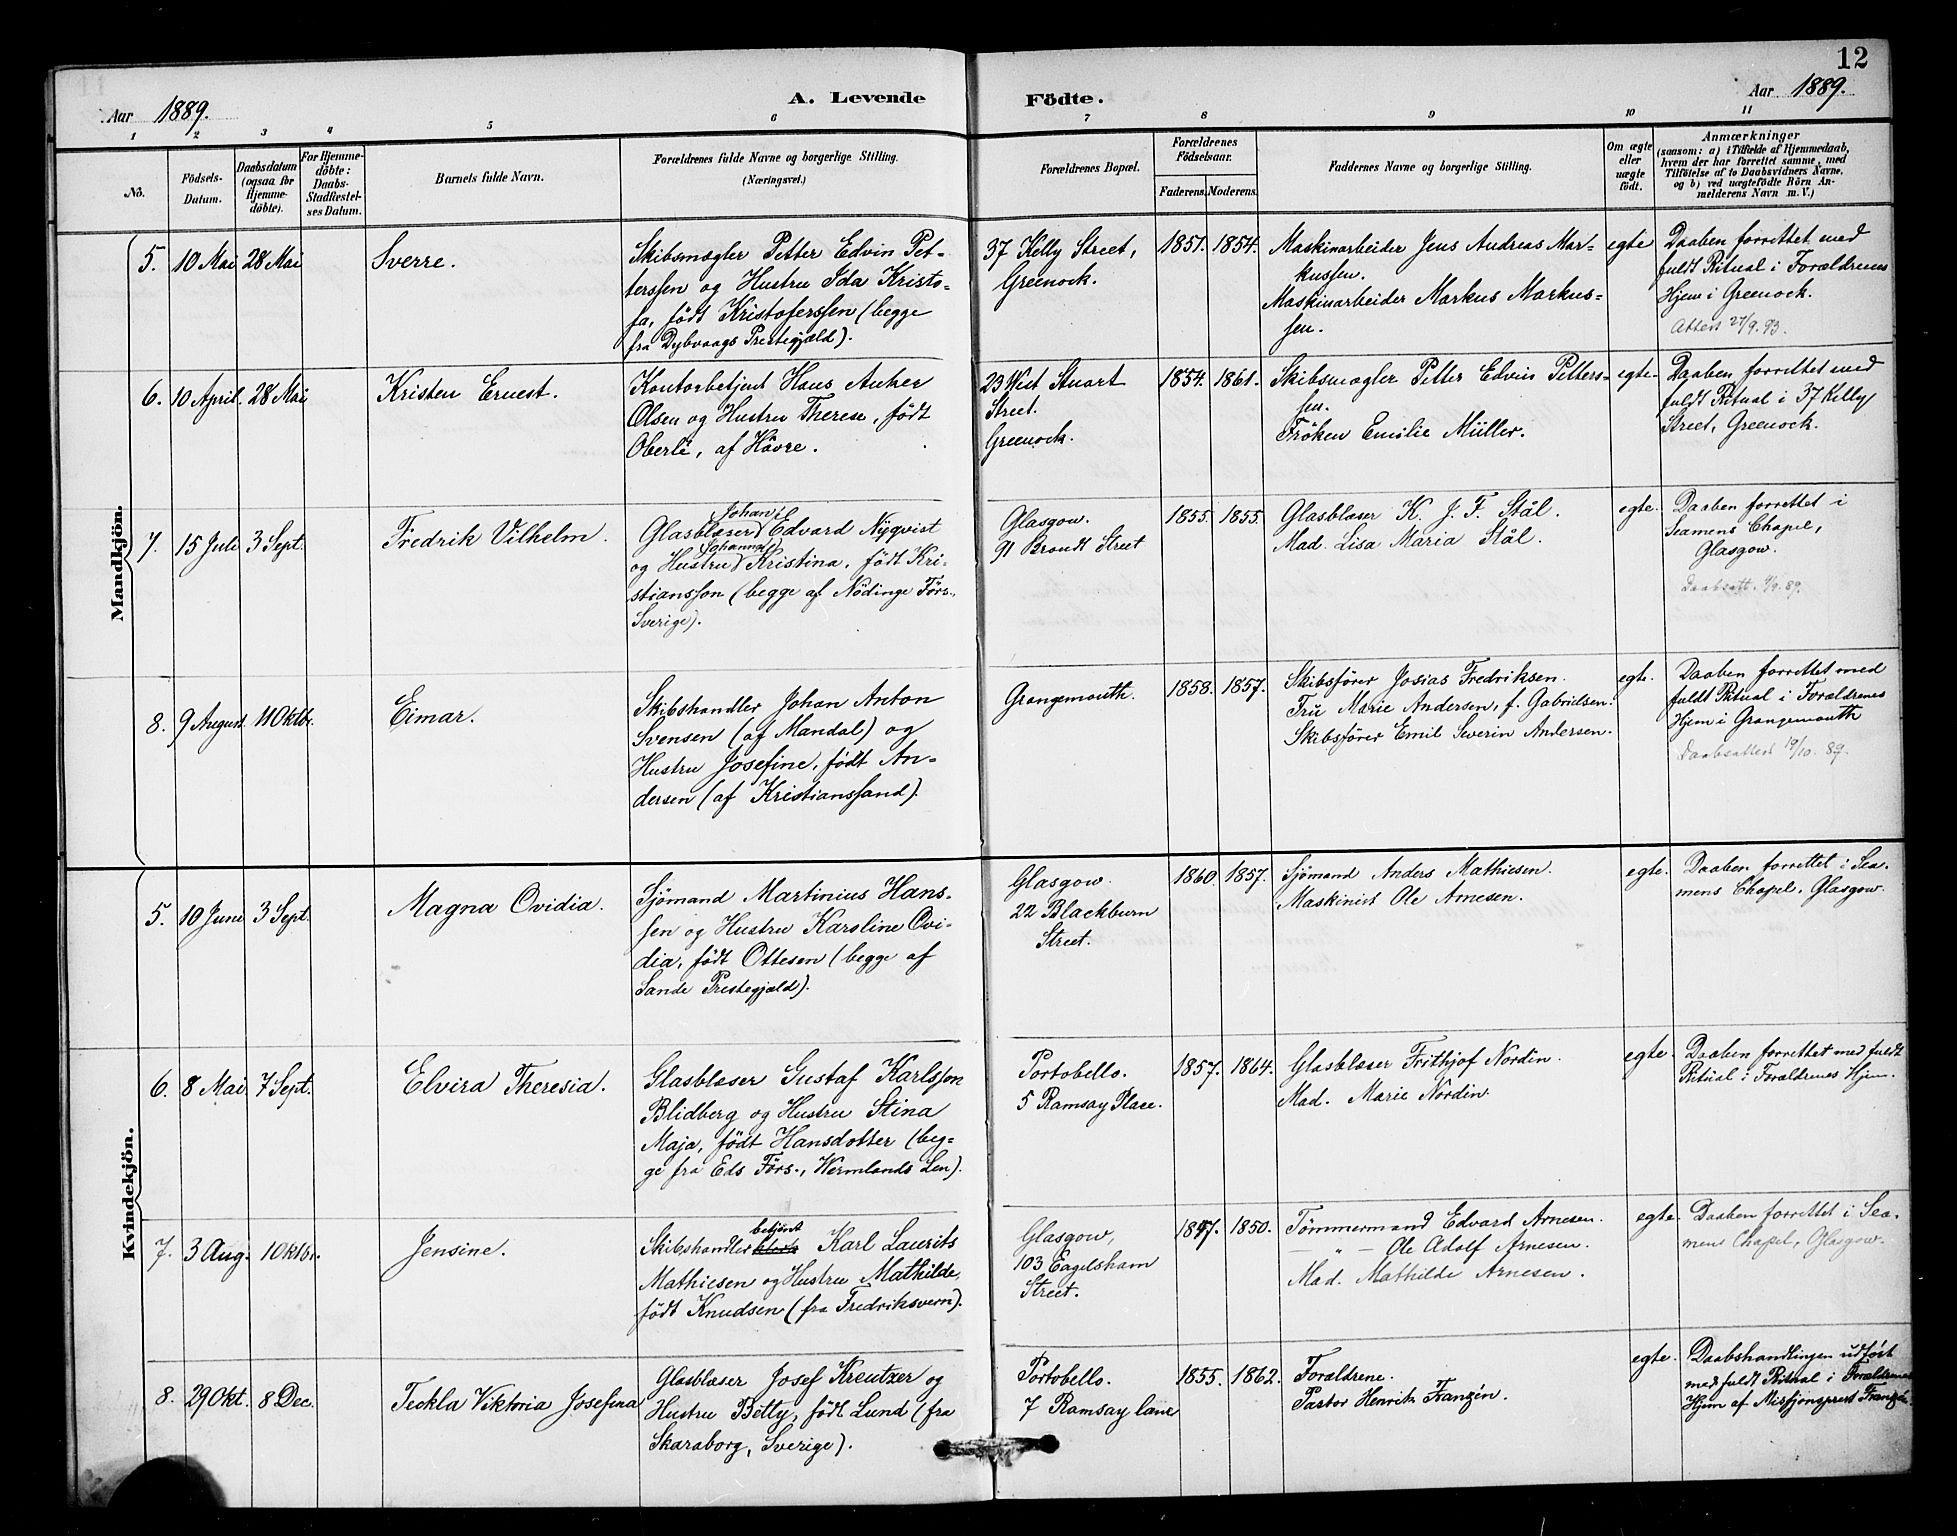 12
Aar 1889.
A. Levende Födte.
Aar 1889.
1 2 3 4 5 6 7 8 9 10 11
No.
Födsels-
Datum.
Daabsdatum
(ogsaa for
Hjemme-
döbte).
For Hjemme-
döbte:
Daabs-
Stadfæstel-
ses Datum.
Barnets fulde Navn.
Forældrenes fulde Navne og borgerlige Stilling.
(Næringsvei.)
Forældrenes Bopæl.
Forældrenes
Födselsaar.
Faderens. Moderens.
Faddernes Navne og borgerlige Stilling.
Om ægte
eller
uægte
födt.
Anmærkninger
(saasom: a) i Tilfælde af Hjemmedaab,
hvem der har forrettet samme, med
Tilföielse af to Daabsvidners Navne,
og b) ved uægtefödte Börn An-
melderens Navn m. V.)
Mandkjön.
5. 10 Mai 28 Mai
Sverre.
Skibsmægler Petter Edvin Pet-
terssen og Hustru Ida Kristo-
fa, født Kristoferssen (begge
fra Dybvaags Prestegjæld).
37 Kelly Street,
Greenock.
1851. 1854.
Maskinarbeider Jens Andreas Mar-
kussen.
Maskinarbeider Markus Markus-
sen.
egte
Daaben forrettet med
fuldt Ritual i Forældrenes
Hjem i Greenock.
Attest 27/9. 93.
6. 10 April. 28 Mai
Kristen Ernest.
Kontorbetjent Hans Anker
Olsen og Hustru Therese, født
Oberlé, af Hâvre.
23 West Stuart
Street.
Greenock.
1854. 1861.
Skibsmægler Petter Edvin Petters-
sen.
Frøken Emilie Müller.
egte.
Daaben forrettet med
fuldt Ritual i 37 Kelly
Street, Greenock.
7. 15 Juli 3 Sept.
Fredrik Vilhelm.
Johan
Glasblæser Edvard Nyqvist
Johanna
og Hustru Kristina, født Kri-
stiansson (begge af Nödinge Förs.,
Sverige).
Glasgow.
91 Street
1855. 1855.
Glasblæser K. J. F. Stål.
Mad. Lisa Maria Stål.
egte.
Daaben forrettet i
Seamens Chapel,
Glasgow.
Daabsatt. 9/9. 89.
8. 9 August. 11 Oktbr.
Eimar.
Skibshandler Johan Anton
Svensen (af Mandal) og
Hustru Josefine, født An-
dersen (af Kristianssand).
Grangemouth.
1858. 1857.
Skibsfører Josias Fredriksen.
Fru Marie Andersen, f. Gabrielsen.
Skibsfører Emil Severin Andersen.
egte.
Daaben forrettet med
fuldt Ritual i Forældrenes
Hjem i Grangemouth
Daabsattest 19/10. 89.
Kvindekjön.
5. 10 Juni 3 Sept.
Magna Ovidia.
Sjömand Martinius Hans-
sen og Hustru Karoline Ovi-
dia, født Ottesen (begge af
Sande Prestegjæld).
Glasgow.
22 Blackburn
Street.
1860. 1857.
Sjömand Anders Mathiesen.
Maskinist Ole Arnesen.
egte.
Daaben forrettet i Sea-
mens Chapel, Glasgow.
6. 8 Mai. 7 Sept.
Elvira Theresia.
Glasblæser Gustaf Karlsson
Blidberg og Hustru Stina
Maja, født Hansdotter (beg-
ge fra Eds Förs., Wermlands Len).
Portobello.
5 Ramsay Place.
1857. 1864.
Glasblæser Frithjof Nordin.
Mad. Marie Nordin.
egte.
Daaben forrettet med fuldt
Ritual i Forældrenes Hjem.
7. 3 Aug. 1 Oktbr.
Jensine.
betjent
Skibshandler clerk Karl Laurits
Mathiesen og Hustru Mathilde,
født Knudsen (fra Fredriksvern).
Glasgow,
103 Eagelsham
Street.
1847. 1850.
Tömmermand Edvard Arnesen.
— " — Ole Adolf Arnesen.
Mad. Mathilde Arnesen.
egte.
Daaben forrettet i Sea-
mens Chapel, Glasgow.
8. 29 Okt. 8 Dec.
Teckla Viktoria Josefina
Glasblæser Josef Kreutzer og
Hustru Betty, født Lund (fra
Skaraborg, Sverige).
Portobello.
7 Ramsay lane
1855. 1862.
Forældrene.
Pastor Henrik Franzén.
egte.
Daabshandlingen udført
med fuldt Ritual i Forældrenes
Hjem af Missjonsprest Franzén.